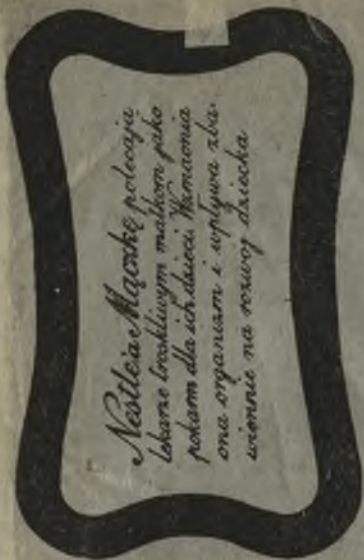 Nestle'a Mączkę polecają
lekarze troskliwym matkom jako
pokarm dla ich dzieci. Wzmacnia
ona organizm i wpływa zba-
wiennie na rozwój dziecka